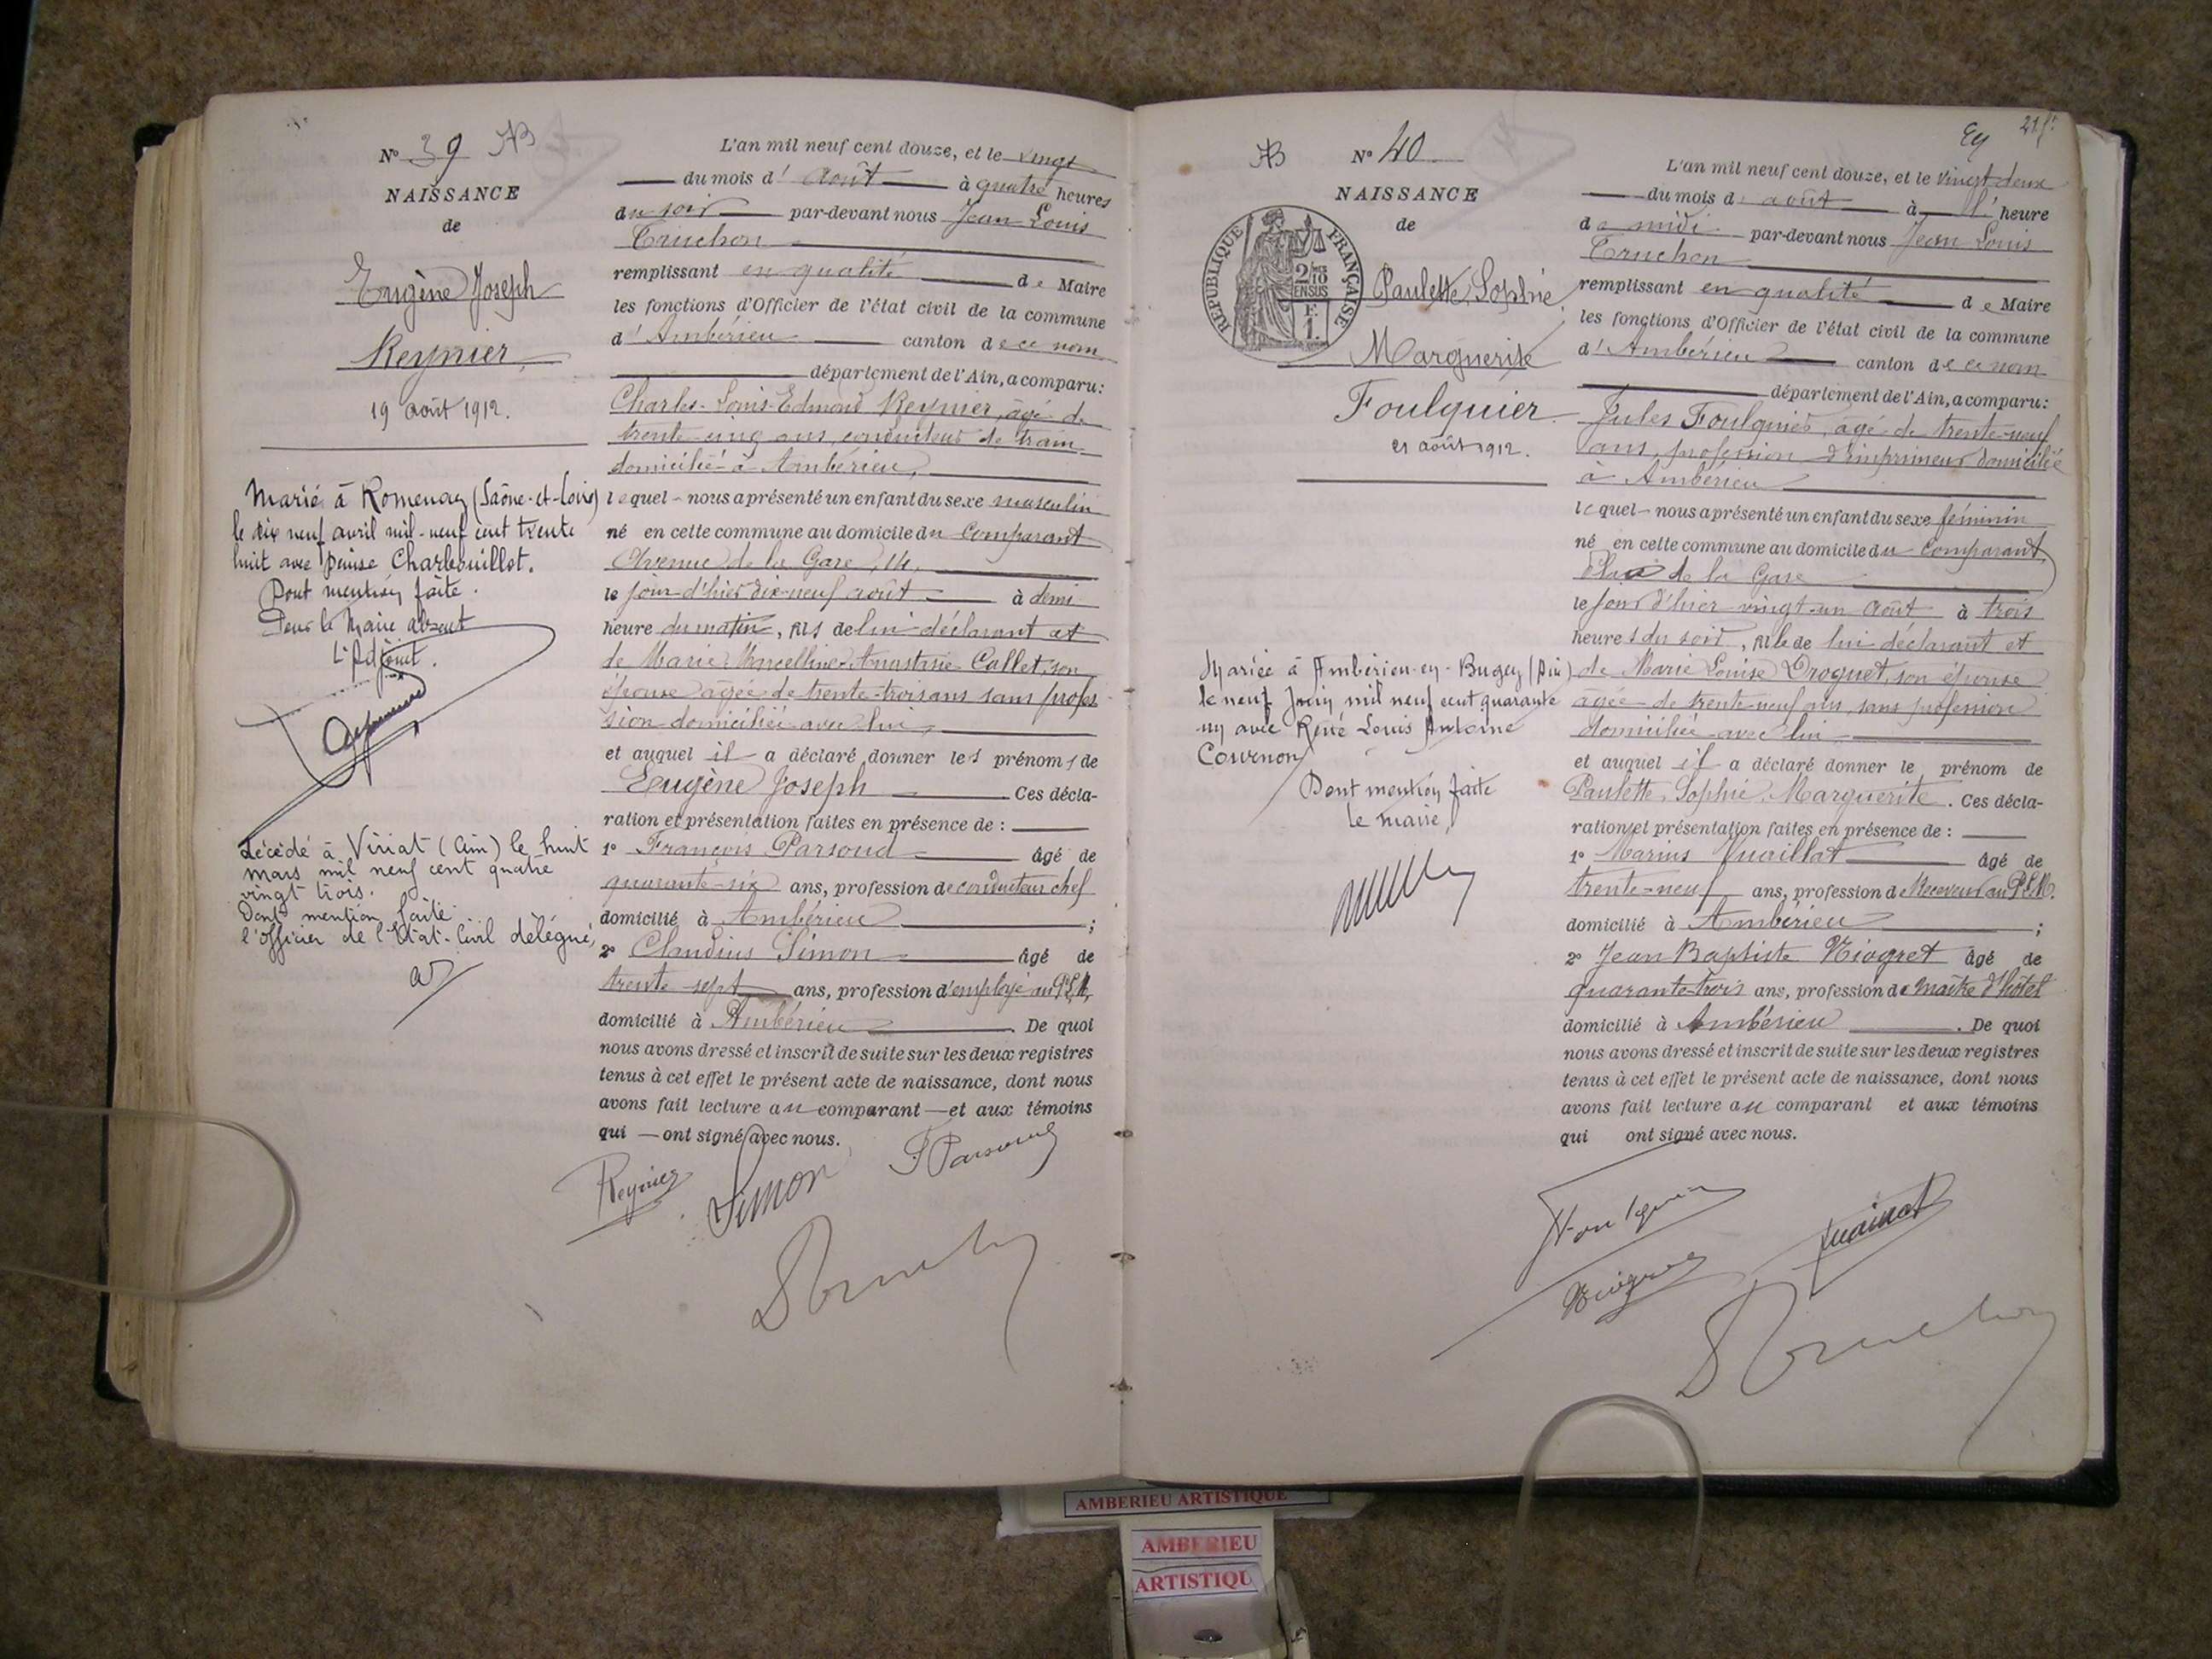 N° 39 AB
NAISSANCE
de
Eugène Joseph
Reynier
19 août 1912.
Marié à Romenay (Saône-et-Loire)
le dix neuf avril mil-neuf cent trente
huit avec Denise Charbouillot.
Dont mention faite.
Pour le Maire absent
L'Adjoint.
Décédé à Viriat (Ain) le huit
mars mil neuf cent quatre
vingt trois.
Dont mention faite
l'officier de l'Etat-Civil délégué,
L'an mil neuf cent douze, et le vingt
du mois d'août à quatre heures
du soir par-devant nous Jean Louis
Truchon
remplissant en qualité de Maire
les fonctions d'Officier de l'état civil de la commune
d'Ambérieu canton de ce nom
département de l'Ain, a comparu:
Charles-Louis-Edmond Reynier, âgé de
trente-cinq ans, conducteur de train
domicilié à Ambérieu,
lequel nous a présenté un enfant du sexe masculin
né en cette commune au domicile du comparant
Avenue de la Gare, 14,
le jour d'hier dix-neuf août à demi
heure du matin, fils de lui déclarant et
de Marie Marcelline Anastasie Collet, son
épouse âgée de trente-trois ans sans profes
sion domiciliée avec lui,
et auquel il a déclaré donner les prénoms de
Eugène Joseph Ces décla-
ration et présentation faites en présence de :
1° François Parsoud âgé de
quarante-six ans, profession de conducteur chef
domicilié à Ambérieu ;
2° Claudius Simon âgé de
trente-sept ans, profession d'employé au P.L.M.
domicilié à Ambérieu . De quoi
nous avons dressé et inscrit de suite sur les deux registres
tenus à cet effet le présent acte de naissance, dont nous
avons fait lecture au comparant et aux témoins
qui ont signé avec nous.
Reynier Simon F Parsoud
Truchon
AB N° 40
NAISSANCE
de
RÉPUBLIQUE FRANÇAISE
2/10 EN SUS
F.
1.
Paulette, Sophie,
Marguerite
Foulquier
21 août 1912.
Mariée à Ambérieu-en-Bugey (Ain)
le neuf Juin mil neuf cent quarante
un avec René Louis Antoine
Cournon
Dont mention faite
Le Maire,
L'an mil neuf cent douze, et le vingt deux
du mois d'août à l' heure
de midi par-devant nous Jean Louis
Truchon
remplissant en qualité de Maire
les fonctions d'Officier de l'état civil de la commune
d'Ambérieu canton de ce nom
département de l'Ain, a comparu:
Jules Foulquier, âgé de trente-neuf
ans, profession d'imprimeur domicilié
à Ambérieu
lequel nous a présenté un enfant du sexe féminin
né en cette commune au domicile du comparant,
Place de la Gare
le jour d'hier vingt-un août à trois
heures du soir, fille de lui déclarant et
de Marie Louise Droguet, son épouse
âgée de trente-neuf ans, sans profession
domiciliée avec lui
et auquel il a déclaré donner le prénom de
Paulette, Sophie, Marguerite. Ces décla-
ration et présentation faites en présence de :
1° Marius Juaillat âgé de
trente-neuf ans, profession de Receveur au P.L.M.
domicilié à Ambérieu ;
2° Jean Baptiste Niogret âgé de
quarante-trois ans, profession de Maître d'hôtel
domicilié à Ambérieu . De quoi
nous avons dressé et inscrit de suite sur les deux registres
tenus à cet effet le présent acte de naissance, dont nous
avons fait lecture au comparant et aux témoins
qui ont signé avec nous.
Foulquier
Niogret
Truchon
AMBERIEU ARTISTIQUE
AMBERIEU
ARTISTIQU